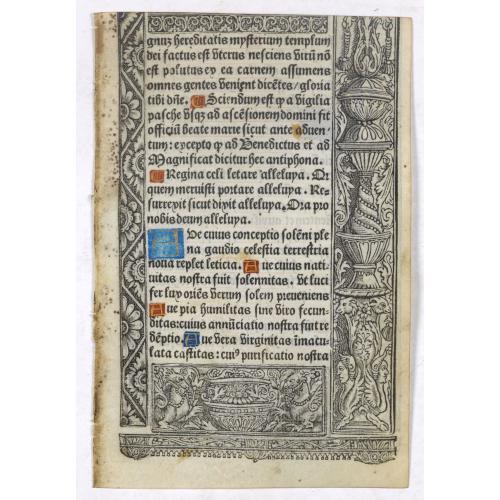 gnuz hereditatis mysterium templum
dei factus est vterus nesciens virū nō
est polutus ex ea carnem assumens
omnes gentes venient dicētes/gloria
tibi dñe. Sciendum est q a vigilia
pasche vsqz ad ascēsionem domini fit
officiū beate marie sicut ante aduen
tum: excepto q ad Benedictus et ad
Magnificat dicitur hec antiphona.
Regina celi letare alleluya. Qr
quem meruisti portare alleluya. Re-
surrexit sicut dixit alleluya. Ora pro
nobis deum alleluya.
Aue cuius conceptio solēni ple
na gaudio celestia terrestria
noua replet leticia. Aue cuius nati
uitas nostra fuit solennitas. Vt luci
fer lux oriēs verum solem preueniens
Aue pia humilitas sine viro fecun
ditas: cuius annūciatio nostra fuit re
dēptio. Aue vera virginitas immacu
lata castitas: cuiꝰ purificatio nostra